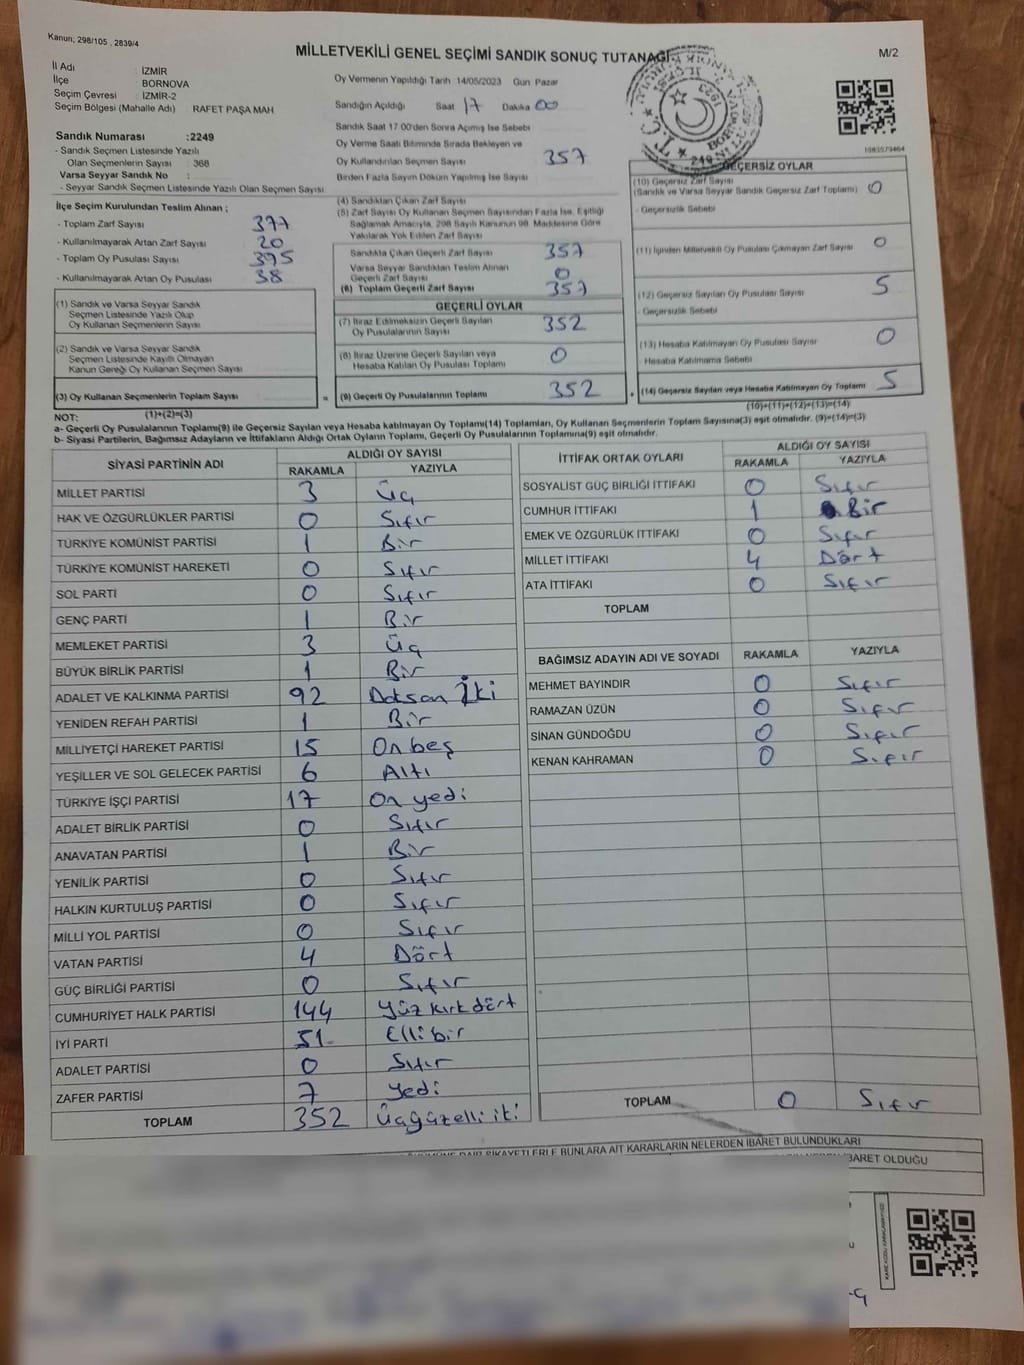 Kanun; 298/105 , 2839/4
MİLLETVEKİLİ GENEL SEÇİMİ SANDIK SONUÇ TUTANAĞI
M/2
İl Adı : İZMİR
İlçe : BORNOVA
Seçim Çevresi : İZMİR-2
Seçim Bölgesi (Mahalle Adı) : RAFET PAŞA MAH
Sandık Numarası :2249
- Sandık Seçmen Listesinde Yazılı
Olan Seçmenlerin Sayısı : 368
Varsa Seyyar Sandık No :
- Seyyar Sandık Seçmen Listesinde Yazılı Olan Seçmen Sayısı
Oy Vermenin Yapıldığı Tarih 14/05/2023 Gün Pazar
Sandığın Açıldığı Saat 17 Dakika 00
Sandık Saat 17:00'den Sonra Açımış İse Sebebi
Oy Verme Saati Bitiminde Sırada Bekleyen ve
Oy Kullandırılan Seçmen Sayısı 357
Birden Fazla Sayım Döküm Yapılmış İse Sayısı
İlçe Seçim Kurulundan Teslim Alınan ;
- Toplam Zarf Sayısı 377
- Kullanılmayarak Artan Zarf Sayısı 20
- Toplam Oy Pusulası Sayısı 395
- Kullanılmayarak Artan Oy Pusulası 38
(1) Sandık ve Varsa Seyyar Sandık
Seçmen Listesinde Yazılı Olup
Oy Kullanan Seçmenlerin Sayısı
(2) Sandık ve Varsa Seyyar Sandık
Seçmen Listesinde Kayıtlı Olmayan
Kanun Gereği Oy Kullanan Seçmen Sayısı
(3) Oy Kullanan Seçmenlerin Toplam Sayısı =
(1)+(2)=(3)
(4) Sandıktan Çıkan Zarf Sayısı
(5) Zarf Sayısı Oy Kullanan Seçmen Sayısından Fazla İse, Eşitliği
Sağlamak Amacıyla, 298 Sayılı Kanunun 98. Maddesine Göre
Yakılarak Yok Edilen Zarf Sayısı
Sandıkta Çıkan Geçerli Zarf Sayısı 357
Varsa Seyyar Sandıktan Teslim Alınan
Geçerli Zarf Sayısı 0
(6) Toplam Geçerli Zarf Sayısı 357
GEÇERLİ OYLAR
(7) İtiraz Edilmeksizin Geçerli Sayılan
Oy Pusulalarının Sayısı 352
(8) İtiraz Üzerine Geçerli Sayılan veya
Hesaba Katılan Oy Pusulası Toplamı 0
(9) Geçerli Oy Pusulalarının Toplamı 352 +
GEÇERSİZ OYLAR
(10) Geçersiz Zarf Sayısı
(Sandık ve Varsa Seyyar Sandık Geçersiz Zarf Toplamı) 0
- Geçersizlik Sebebi
(11) İçinden Milletvekili Oy Pusulası Çıkmayan Zarf Sayısı 0
(12) Geçersiz Sayılan Oy Pusulası Sayısı 5
- Geçersizlik Sebebi
(13) Hesaba Katılmayan Oy Pusulası Sayısı 0
- Hesaba Katılmama Sebebi
(14) Geçersiz Sayılan veya Hesaba Katılmayan Oy Toplamı 5
(10)+(11)+(12)+(13)=(14)
NOT:
a- Geçerli Oy Pusulalarının Toplamı(9) ile Geçersiz Sayılan veya Hesaba katılmayan Oy Toplamı(14) Toplamları, Oy Kullanan Seçmenlerin Toplam Sayısına(3) eşit olmalıdır. (9)+(14)=(3)
b- Siyasi Partilerin, Bağımsız Adayların ve İttifakların Aldığı Ortak Oyların Toplamı, Geçerli Oy Pusulalarının Toplamına(9) eşit olmalıdır.
SİYASİ PARTİNİN ADI ALDIĞI OY SAYISI
RAKAMLA YAZIYLA
MİLLET PARTİSİ 3 Üç
HAK VE ÖZGÜRLÜKLER PARTİSİ 0 Sıfır
TÜRKİYE KOMÜNİST PARTİSİ 1 Bir
TÜRKİYE KOMÜNİST HAREKETİ 0 Sıfır
SOL PARTİ 0 Sıfır
GENÇ PARTİ 1 Bir
MEMLEKET PARTİSİ 3 Üç
BÜYÜK BİRLİK PARTİSİ 1 Bir
ADALET VE KALKINMA PARTİSİ 92 Doksan İki
YENİDEN REFAH PARTİSİ 1 Bir
MİLLİYETÇİ HAREKET PARTİSİ 15 On beş
YEŞİLLER VE SOL GELECEK PARTİSİ 6 Altı
TÜRKİYE İŞÇİ PARTİSİ 17 On yedi
ADALET BİRLİK PARTİSİ 0 Sıfır
ANAVATAN PARTİSİ 1 Bir
YENİLİK PARTİSİ 0 Sıfır
HALKIN KURTULUŞ PARTİSİ 0 Sıfır
MİLLİ YOL PARTİSİ 0 Sıfır
VATAN PARTİSİ 4 Dört
GÜÇ BİRLİĞİ PARTİSİ 0 Sıfır
CUMHURİYET HALK PARTİSİ 144 Yüz kırk dört
İYİ PARTİ 51 Elli bir
ADALET PARTİSİ 0 Sıfır
ZAFER PARTİSİ 7 Yedi
TOPLAM 352 Üçyüzelliiki
İTTİFAK ORTAK OYLARI ALDIĞI OY SAYISI
RAKAMLA YAZIYLA
SOSYALİST GÜÇ BİRLİĞİ İTTİFAKI 0 Sıfır
CUMHUR İTTİFAKI 1 Bir
EMEK VE ÖZGÜRLÜK İTTİFAKI 0 Sıfır
MİLLET İTTİFAKI 4 Dört
ATA İTTİFAKI 0 Sıfır
TOPLAM
BAĞIMSIZ ADAYIN ADI VE SOYADI RAKAMLA YAZIYLA
MEHMET BAYINDIR 0 Sıfır
RAMAZAN ÜZÜN 0 Sıfır
SİNAN GÜNDOĞDU 0 Sıfır
KENAN KAHRAMAN 0 Sıfır
TOPLAM 0 Sıfır
ŞİKAYETLERLE BUNLARA AİT KARARLARIN NELERDEN İBARET BULUNDUKLARI
İBARET OLDUĞU